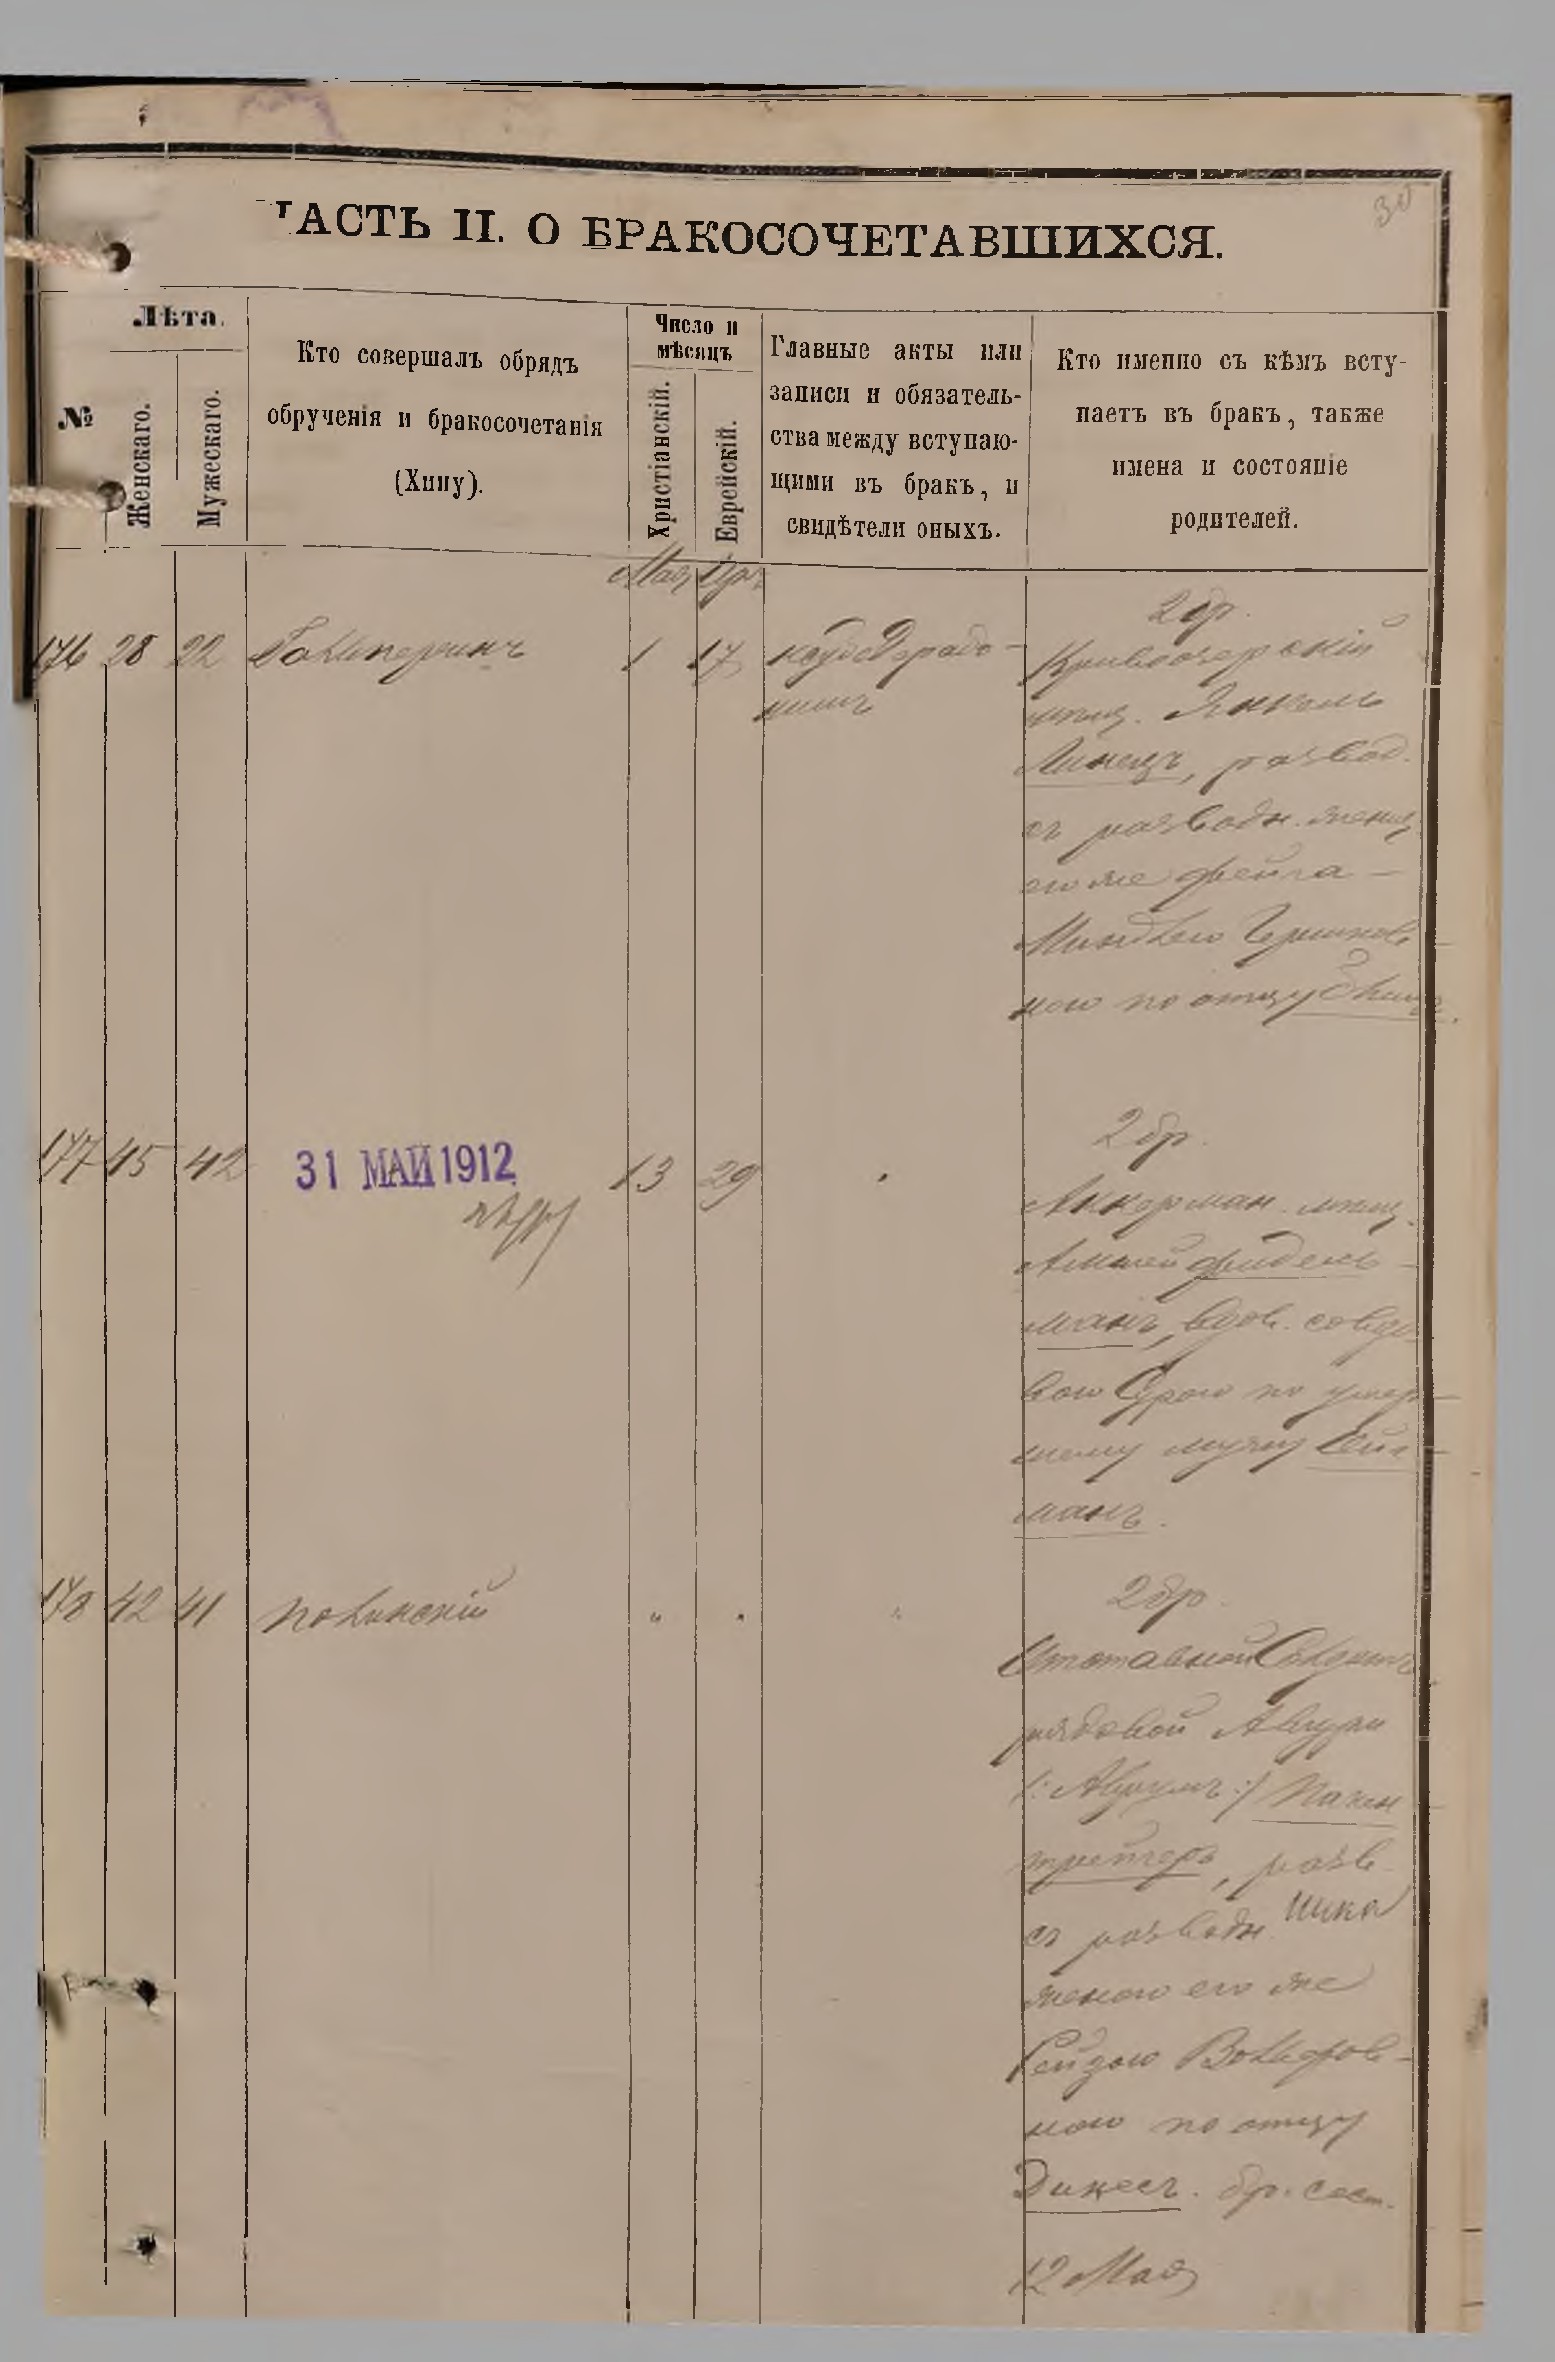 30
ЧАСТЬ II. О БРАКОСОЧЕТАВШИХСЯ.
№
Лѣта.
Женскаго.
Мужескаго.
Кто совершалъ обрядъ
обрученія и бракосочетанія
(Хипу).
Число и
мѣсяцъ
Христіанскій.
Еврейскій.
Главные акты или
записи и обязатель-
ства между вступаю-
щими въ бракъ, и
свидѣтели оныхъ.
Кто именно съ кѣмъ всту-
паетъ въ бракъ, также
имена и состояніе
родителей.
Мая
176 28 22 Гальперинъ 1 17
2 бр.
Кривоозерскій
мѣщ. Янкель
Линецъ, развод.
съ разводн. женщ.
его же Фейга-
Миндлею Гершков-
ною по отцу
177 45 42
31 МАЙ 1912
13 29
2 бр.
Аккерман. мѣщ.
Фидель-
манъ, вдов. со вдо-
вою Сурою по умер-
шему мужу
манъ.
178 42 41 Полинскій " " "
2 бр.
Отставной
рядовой Авгрум
/: Аврумъ :/ Пакен
трейгеръ, разв.
съ разводн.
женою его же
Рейзою Вольфов-
ною по отцу
Дикесъ. бр. сост.
12 Мая